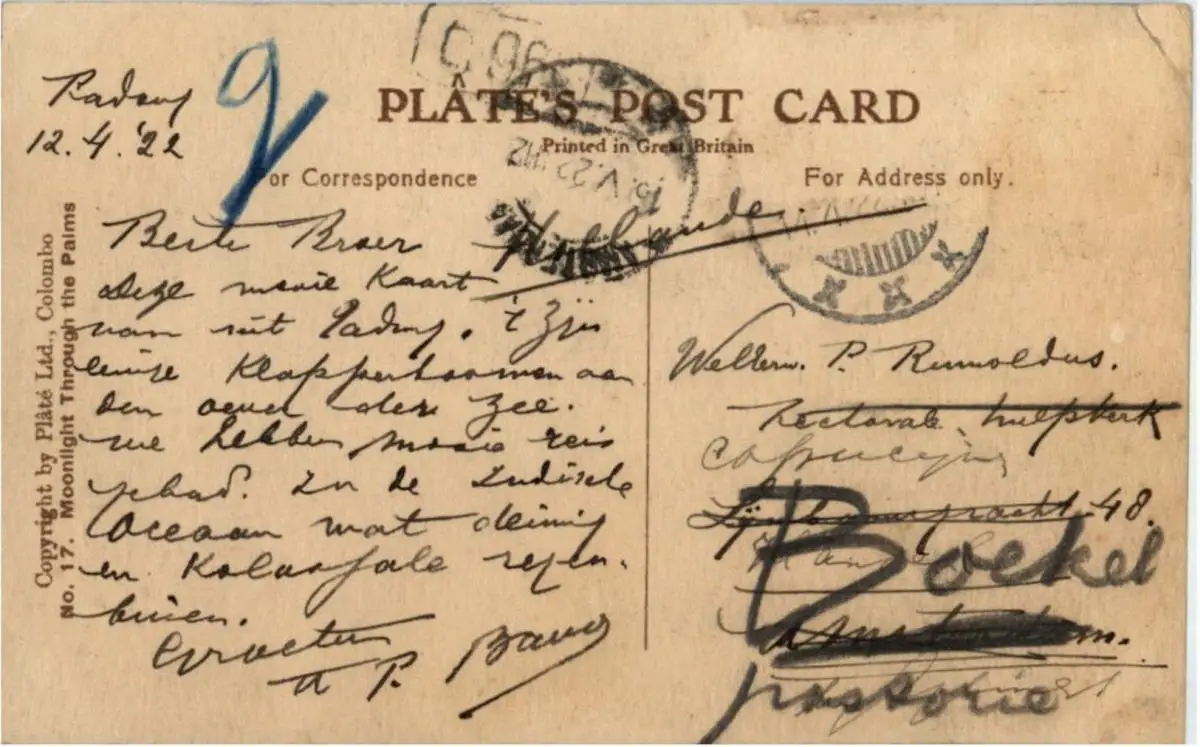 Padang
12.4.'22
2
PLÂTÉ'S POST CARD
Printed in Great Britain
For Correspondence
For Address only.
Copyright by Plâté Ltd., Colombo
No. 17. Moonlight Through the Palms
Beste Broer
Deze mooie Kaart
van uit Padang. 't Zijn
eenige Klapperboomen aan
den oever der zee.
we hebben mooie reis
gehad. In de Indische
Oceaan wat deining
en Kolossale regen-
buien.
Groeten
P.
Hollande
Weleerw. P. Rumoldus.
Rectorale hulpkerk
Capucijn
Lijnbaansgracht 48.
Boekel
Amsterdam.
pastorie